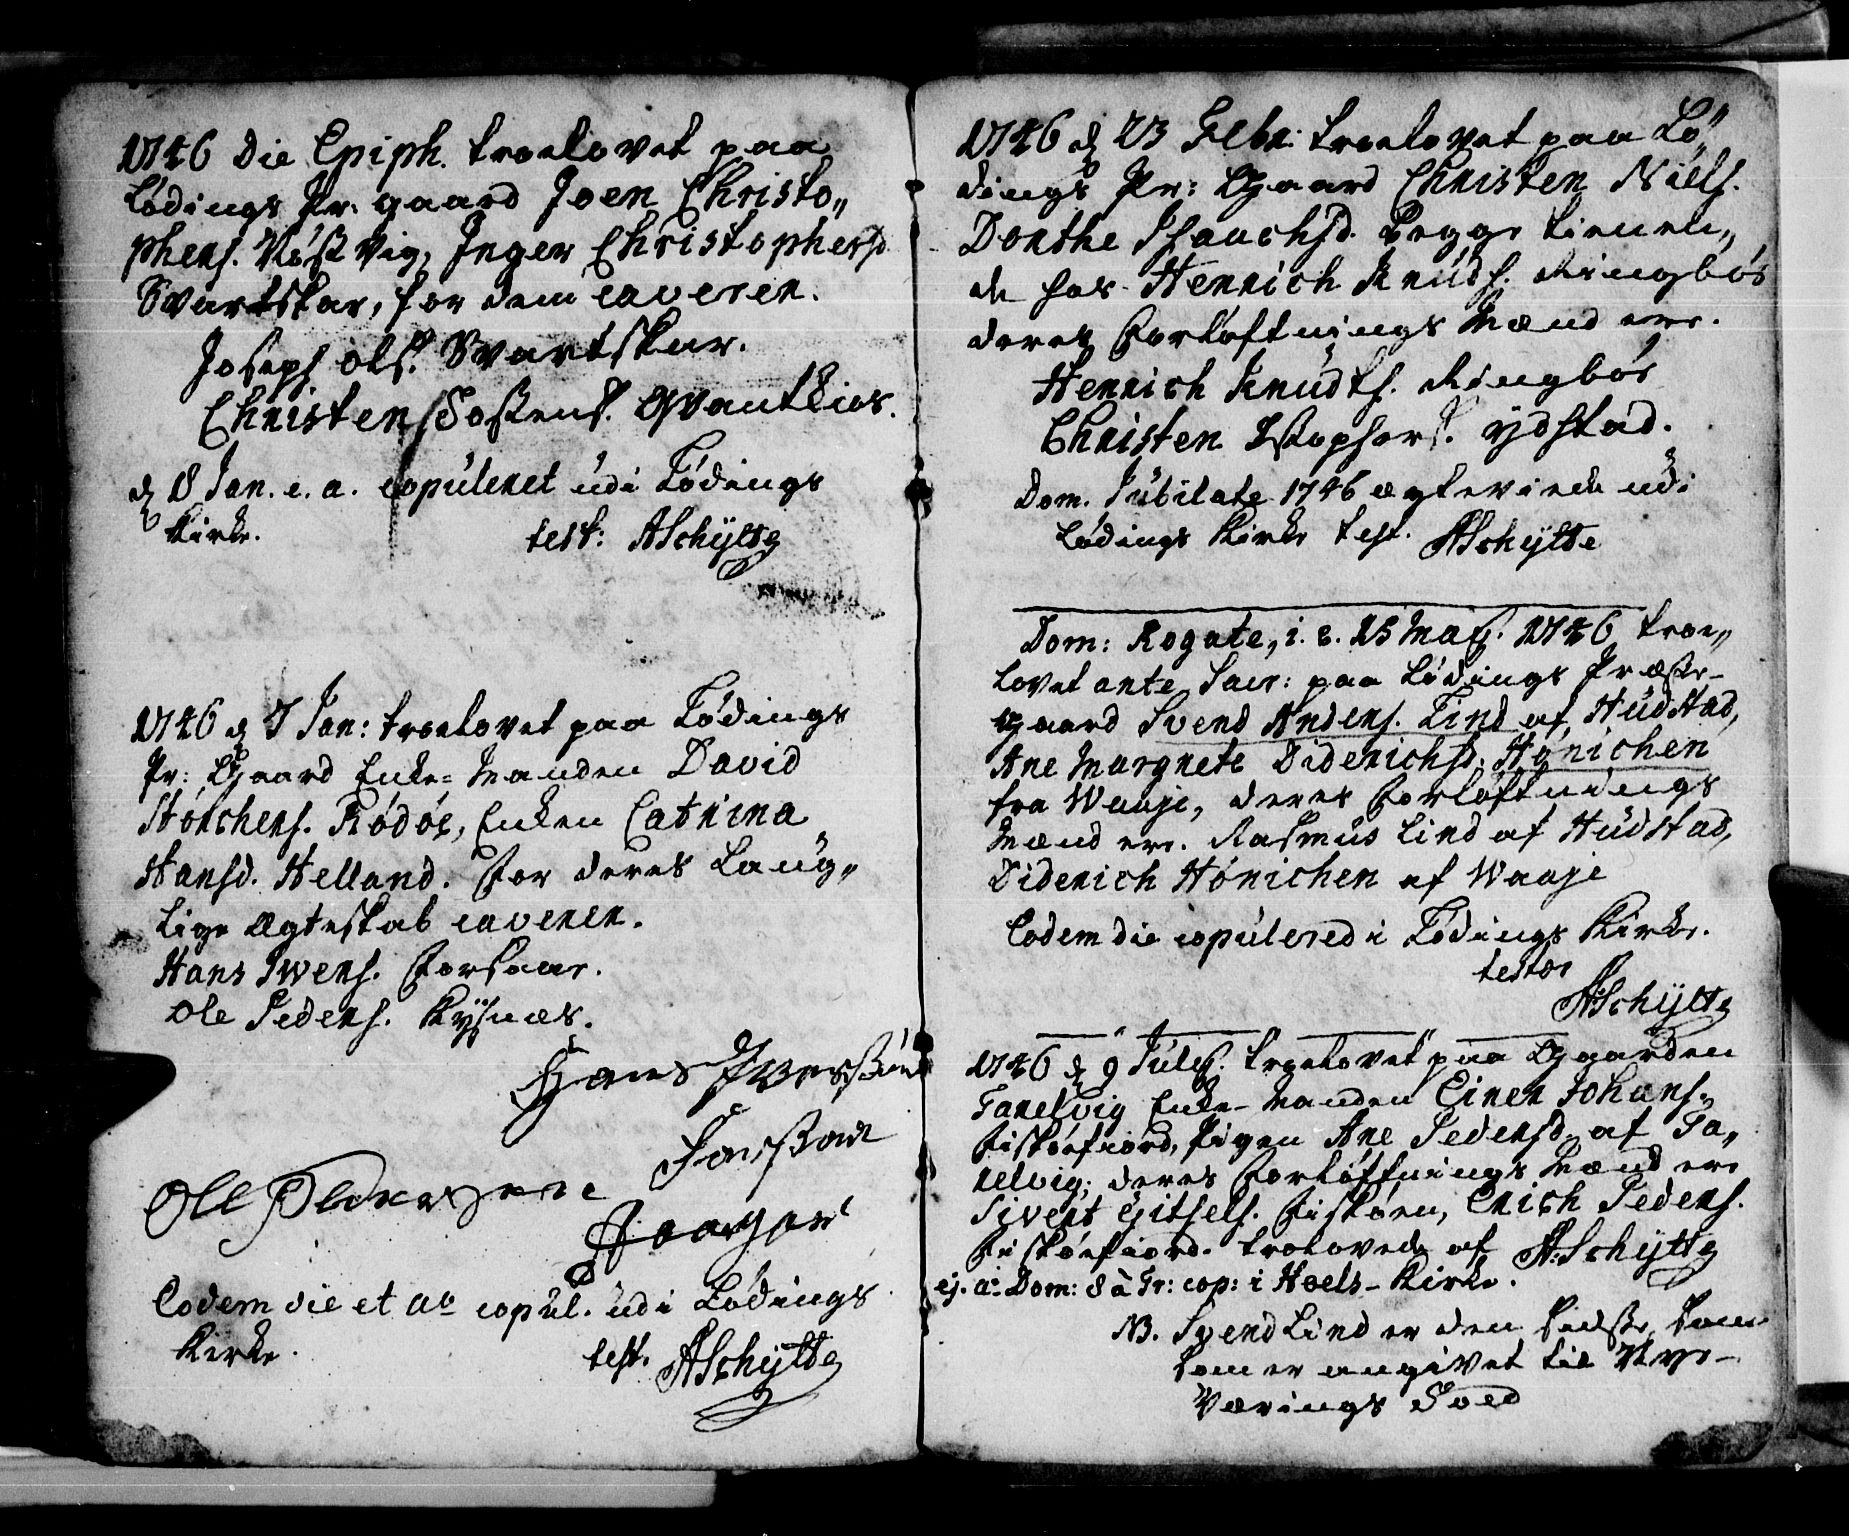 1746 Die Epiph. troelovet paa
Lødings Pr. gaard Joen Christo„
phers. Røst Vig, Inger Christophersd.
Svartskar, for dem caverer.
Joseph Ols. Svartskar.
Christen Tostens. Qvantkios.
d 18 Jan. e. a. copuleret udi Lødings
Kirke.
test: ASchÿtte
1746 d 7 Jan: troelovet paa Lødings
Pr: Gaard Enke-Manden David
Størchers. Rødøe, Enken Catrina
Hansd. Helland. For deres Laug„
lige Ægteskab caverer.
Hans Iwers. Forsaae.
Ole Peders. Kysnæs.
Hans Iwerssen
Forssaae
Ole Pedersen
Eodem die et ao copul. udi Lødings
Kirke.
test. ASchÿtte
1746 d 23 Febr: troelovet paa Lø„
dings Pr: Gaard Christen Niels.
Dorthe Isauchsd. begge tienen„
de hos Henrich Knuds. Ringbøe
deres Forløftnings Mænd ere.
Henrich Knudts. Ringbøe
Christen Xstophers. ydstad.
Dom. Jubilate 1746 ægteviede udi
Lødings Kirke test. ASchÿtte
Dom: Rogate, i. e. 15 Maÿ. 1746 troe„
lovet ante Sacr: paa Lødings Præste-
gaard Svend Anders. Lind af Hudstad,
Ane Margrete Diderichsd. Hønichen
fra Waaje, deres Forløftnings
Mænd ere. Rasmus Lind af Hudstad,
Diderich Hønichen af Waaje
Eodem die copulered i Lødings Kirke.
testor
ASchÿtte
1746 d 9 Julÿ. troelovet paa Gaarden
Tanelvig Enke-Manden Einer Johans.
Fiskøefiord, Pigen Ane Pedersd. af Ta„
nelvig; deres Forløftnings Mænd ere
Sivert Gitsels. Fiskøen, Erich Peders.
Fiskøefiord. trolovede af A:Schÿtte
ej. a: Dom: 8 à Tr: cop: i Hoels-Kirke.
NB. Svend Lind er den sidste, som
som er angivet til Nye-
Værings Told